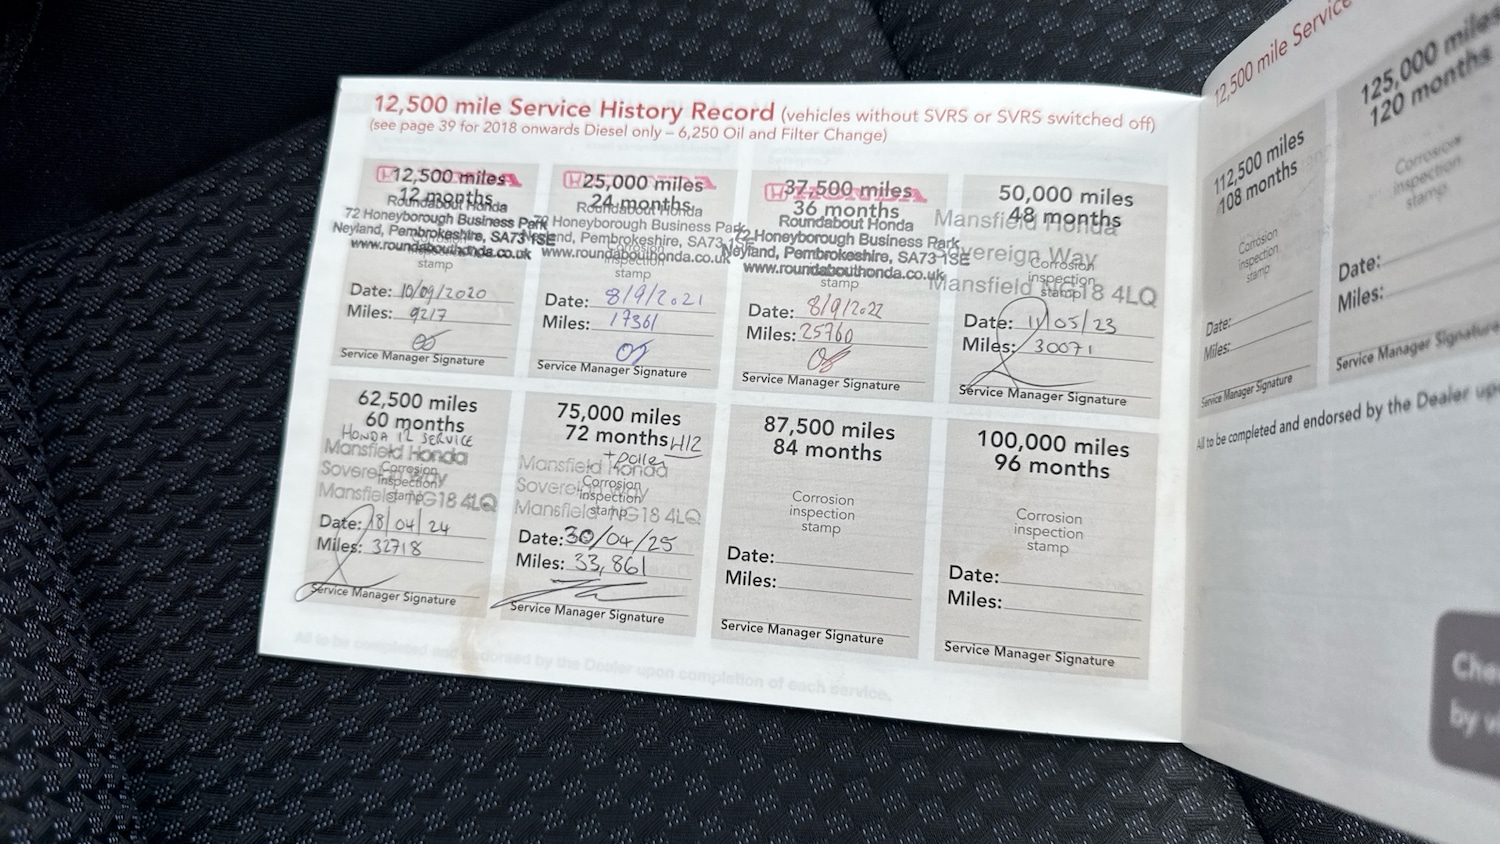 12,500 mile Service History Record (vehicles without SVRS or SVRS switched off)
(see page 39 for 2018 onwards Diesel only – 6,250 Oil and Filter Change)
12,500 miles
12 months
Roundabout Honda
72 Honeyborough Business Park
Neyland, Pembrokeshire, SA73 1SE
www.roundabouthonda.co.uk
stamp
Date: 10/09/2020
Miles: 9217
Service Manager Signature
25,000 miles
24 months
Roundabout Honda
72 Honeyborough Business Park
Neyland, Pembrokeshire, SA73 1SE
Corrosion
www.roundabouthonda.co.uk
stamp
Date: 8/9/2021
Miles: 17361
Service Manager Signature
HONDA
37,500 miles
36 months
Roundabout Honda
72 Honeyborough Business Park
Neyland, Pembrokeshire, SA73 1SE
www.roundabouthonda.co.uk
stamp
Date: 8/9/2022
Miles: 25760
Service Manager Signature
50,000 miles
48 months
Mansfield Honda
Sovereign Way
Mansfield NG18 4LQ
Corrosion
inspection
stamp
Date: 11/05/23
Miles: 30071
Service Manager Signature
62,500 miles
60 months
HONDA 12 SERVICE
Mansfield Honda
Sovereign Way
Mansfield NG18 4LQ
Corrosion
inspection
stamp
Date: 18/04/24
Miles: 32718
Service Manager Signature
75,000 miles
72 months H12
Mansfield Honda
Sovereign Way
Mansfield NG18 4LQ
Corrosion
inspection
stamp
Date: 30/04/25
Miles: 33,861
Service Manager Signature
87,500 miles
84 months
Corrosion
inspection
stamp
Date:
Miles:
Service Manager Signature
100,000 miles
96 months
Corrosion
inspection
stamp
Date:
Miles:
Service Manager Signature
All to be completed and endorsed by the Dealer upon completion of each service.
12,500 mile Service
112,500 miles
108 months
Corrosion
inspection
stamp
Date:
Miles:
Service Manager Signature
125,000 miles
120 months
Corrosion
inspection
stamp
Date:
Miles:
Service Manager Signature
All to be completed and endorsed by the Dealer